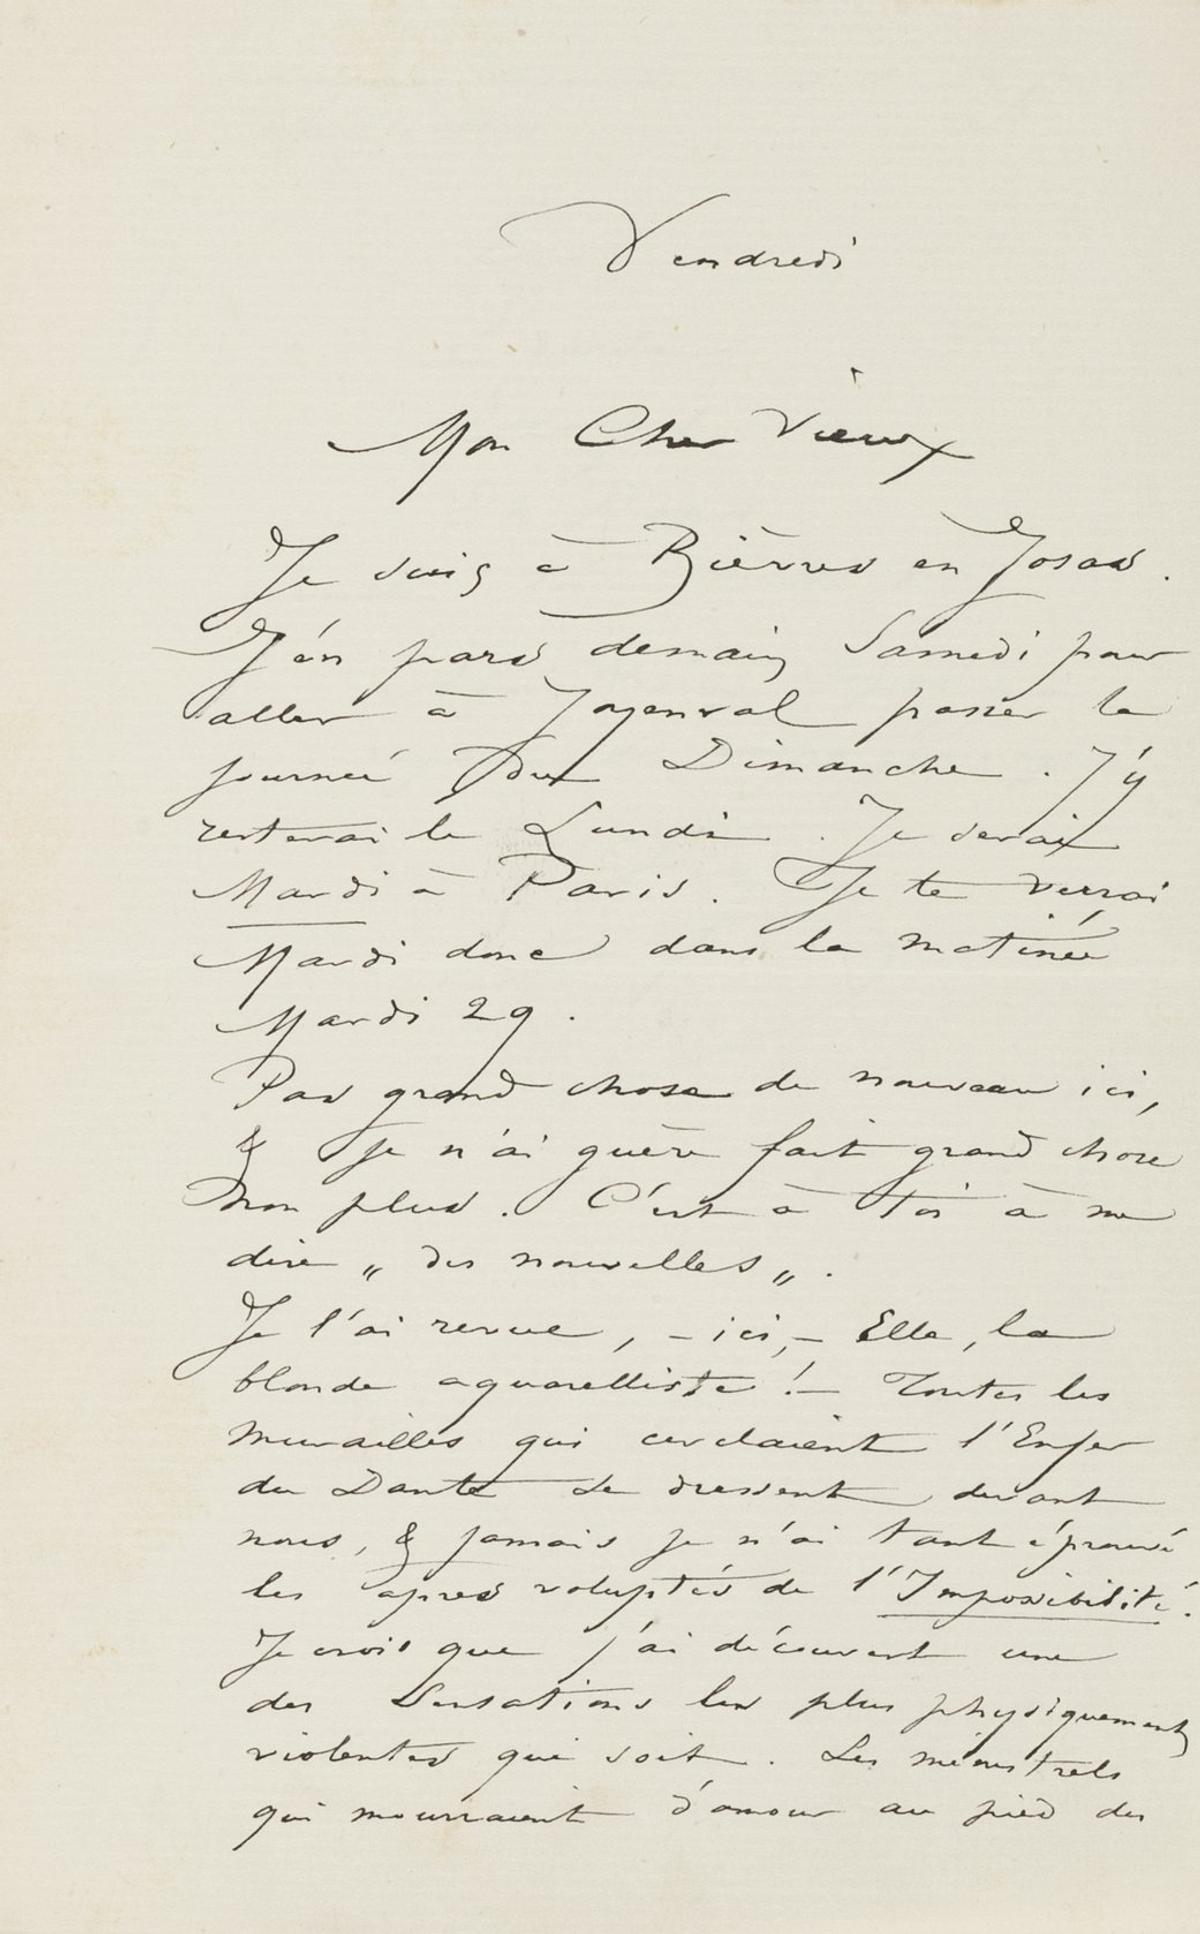 Vendredi
Mon Cher Vieux
Je suis à Bièvres en Josas.
J'en pars demain Samedi pour
aller à Joyenval passer la
journée du Dimanche. J'y
resterai le Lundi. Je serai
Mardi à Paris. Je te verrai
Mardi donc dans la matinée
Mardi 29.
Pas grand chose de nouveau ici,
& je n'ai guère fait grand chose
non plus. C'est à toi à me
dire „ des nouvelles „.
Je l'ai revue, – ici, – Elle, la
blonde aquarelliste ! – Toutes les
murailles qui cerclaient l'Enfer
du Dante se dressent devant
nous, & jamais je n'ai tant éprouvé
les apres voluptés de l'Impossibilité.
Je crois que j'ai découvert une
des sensations les plus physiquement
violentes qui soit. Les ménestrels
qui mourraient d'amour au pied des